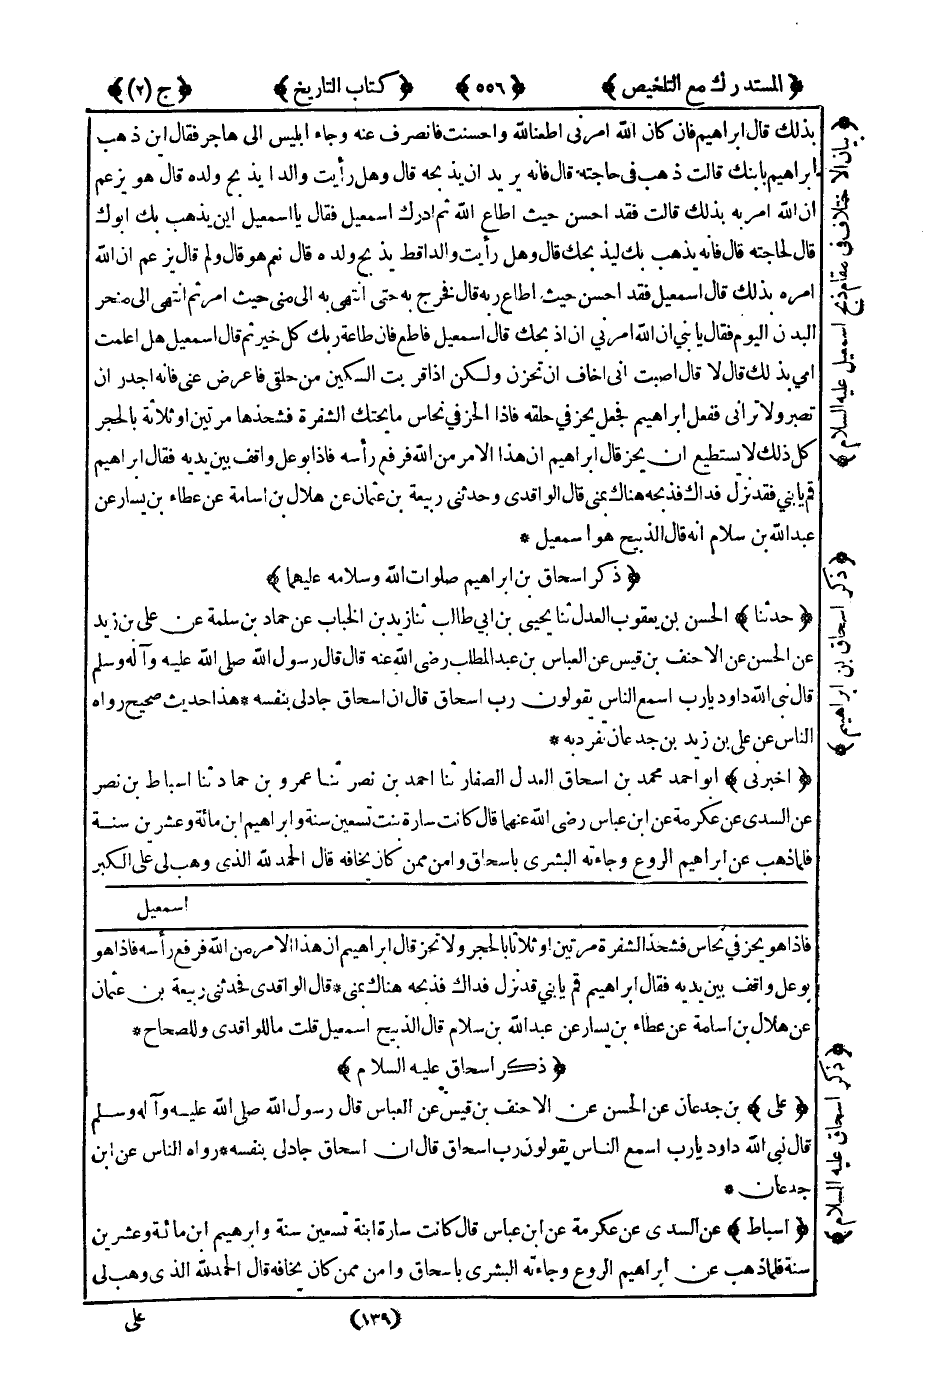 ﴿ المستدرك مع التلخيص ﴾ ﴿ ٥٥٦ ﴾ ﴿ كتاب التاريخ ﴾ ﴿ ج (٢) ﴾
بذلك قال ابراهيم فان كان الله امرنى اطعنالله واحسنت فانصرف عنه وجاء ابليس الى هاجر فقال اين ذهب
ابراهيم بابنك قالت ذهب فى حاجته قال فانه يريد ان يذبحه قال وهل رأيت والدا يذبح ولده قال هو يزعم
ان الله امر به بذلك قالت فقد احسن حيث اطاع الله ثم ادرك اسمعيل فقال يا اسمعيل اين يذهب بك ابوك
قال لحاجته قال فانه يذهب بك ليذبحك قال وهل رأيت والدا قط يذبح ولده قال نعم هو قال ولم قال يزعم ان الله
امره بذلك قال اسمعيل فقد احسن حيث اطاع ربه قال فخرج به حتى انتهى به الى منى حيث امر ثم انتهى الى منحر
البدن اليوم فقال يا بني ان الله امرني ان اذبحك قال اسمعيل فاطع فان طاعة ربك كل خير ثم قال اسمعيل هل اعلمت
امي بذلك قال لا قال اصبت انى اخاف ان تحزن ولكن اذا قربت السكين من حلقى فاعرض عنى فانه اجدر ان
تصبر ولا ترانى ففعل ابراهيم فجعل يحز في حلقه فاذا الحز في نحاس ما يحتك الشفرة فشحذها مرتين او ثلاثة بالحجر
كل ذلك لا يستطيع ان يحز قال ابراهيم ان هذا الامر من الله فرفع رأسه فاذا بوعل واقف بين يديه فقال ابراهيم
قم يا بني فقد نزل فداك فذبحه هناك بمنى قال الواقدى وحدثنى ربيعة بن عثمان عن هلال بن اسامة عن عطاء بن يسار عن
عبدالله بن سلام انه قال الذبيح هو اسمعيل *
﴿ ذكر اسحاق بن ابراهيم صلوات الله وسلامه عليهما ﴾
﴿ حدثنا ﴾ الحسن بن يعقوب العدل ثنا يحيى بن ابي طالب ثنا زيد بن الحباب عن حماد بن سلمة عن على بن زيد
عن الحسن عن الاحنف بن قيس عن العباس بن عبد المطلب رضى الله عنه قال قال رسول الله صلى الله عليه وآله وسلم
قال نبى الله داود يارب اسمع الناس يقولون رب اسحاق قال ان اسحاق جادلى بنفسه * هذا حديث صحيح رواه
الناس عن على بن زيد بن جدعان تفرد به *
﴿ اخبرنى ﴾ ابو احمد محمد بن اسحاق العدل الصفار ثنا احمد بن نصر ثنا عمرو بن حماد ثنا اسباط بن نصر
عن السدى عن عكرمة عن ابن عباس رضى الله عنهما قال كانت سارة بنت تسعين سنة وابراهيم ابن مائة وعشرين سنة
فلما ذهب عن ابراهيم الروع وجاءته البشرى باسحاق وامن ممن كان يخافه قال الحمد لله الذى وهب لى على الكبر
اسمعيل
فاذا هو يحز في نحاس فشحذ الشفرة مرتين او ثلاثا بالحجر ولا تحز قال ابراهيم ان هذا الامر من الله فرفع رأسه فاذا هو
بوعل واقف بين يديه فقال ابراهيم قم يا بني قد نزل فداك فذبحه هناك بمنى * قال الواقدى فحدثنى ربيعة بن عثمان
عن هلال بن اسامة عن عطاء بن يسار عن عبدالله بن سلام قال الذبيح اسمعيل قلت ما للواقدى وللصحاح *
﴿ ذكر اسحاق عليه السلام ﴾
﴿ على ﴾ بن جدعان عن الحسن عن الاحنف بن قيس عن العباس قال رسول الله صلى الله عليه وآله وسلم
قال نبى الله داود يارب اسمع الناس يقولون رب اسحاق قال ان اسحاق جادلى بنفسه * رواه الناس عن ابن
جدعان *
﴿ اسباط ﴾ عن السدى عن عكرمة عن ابن عباس قال كانت سارة ابنة تسعين سنة وابرهيم ابن مائة وعشرين
سنة فلما ذهب عن ابراهيم الروع وجاءته البشرى باسحاق وامن ممن كان يخافه قال الحمد لله الذى وهب لى
(١٣٩) على
﴿ بيان الاختلاف فى مقام ذبح اسمعيل عليه السلام ﴾
﴿ ذكر اسحاق بن ابراهيم ﴾
﴿ ذكر اسحاق عليه السلام ﴾